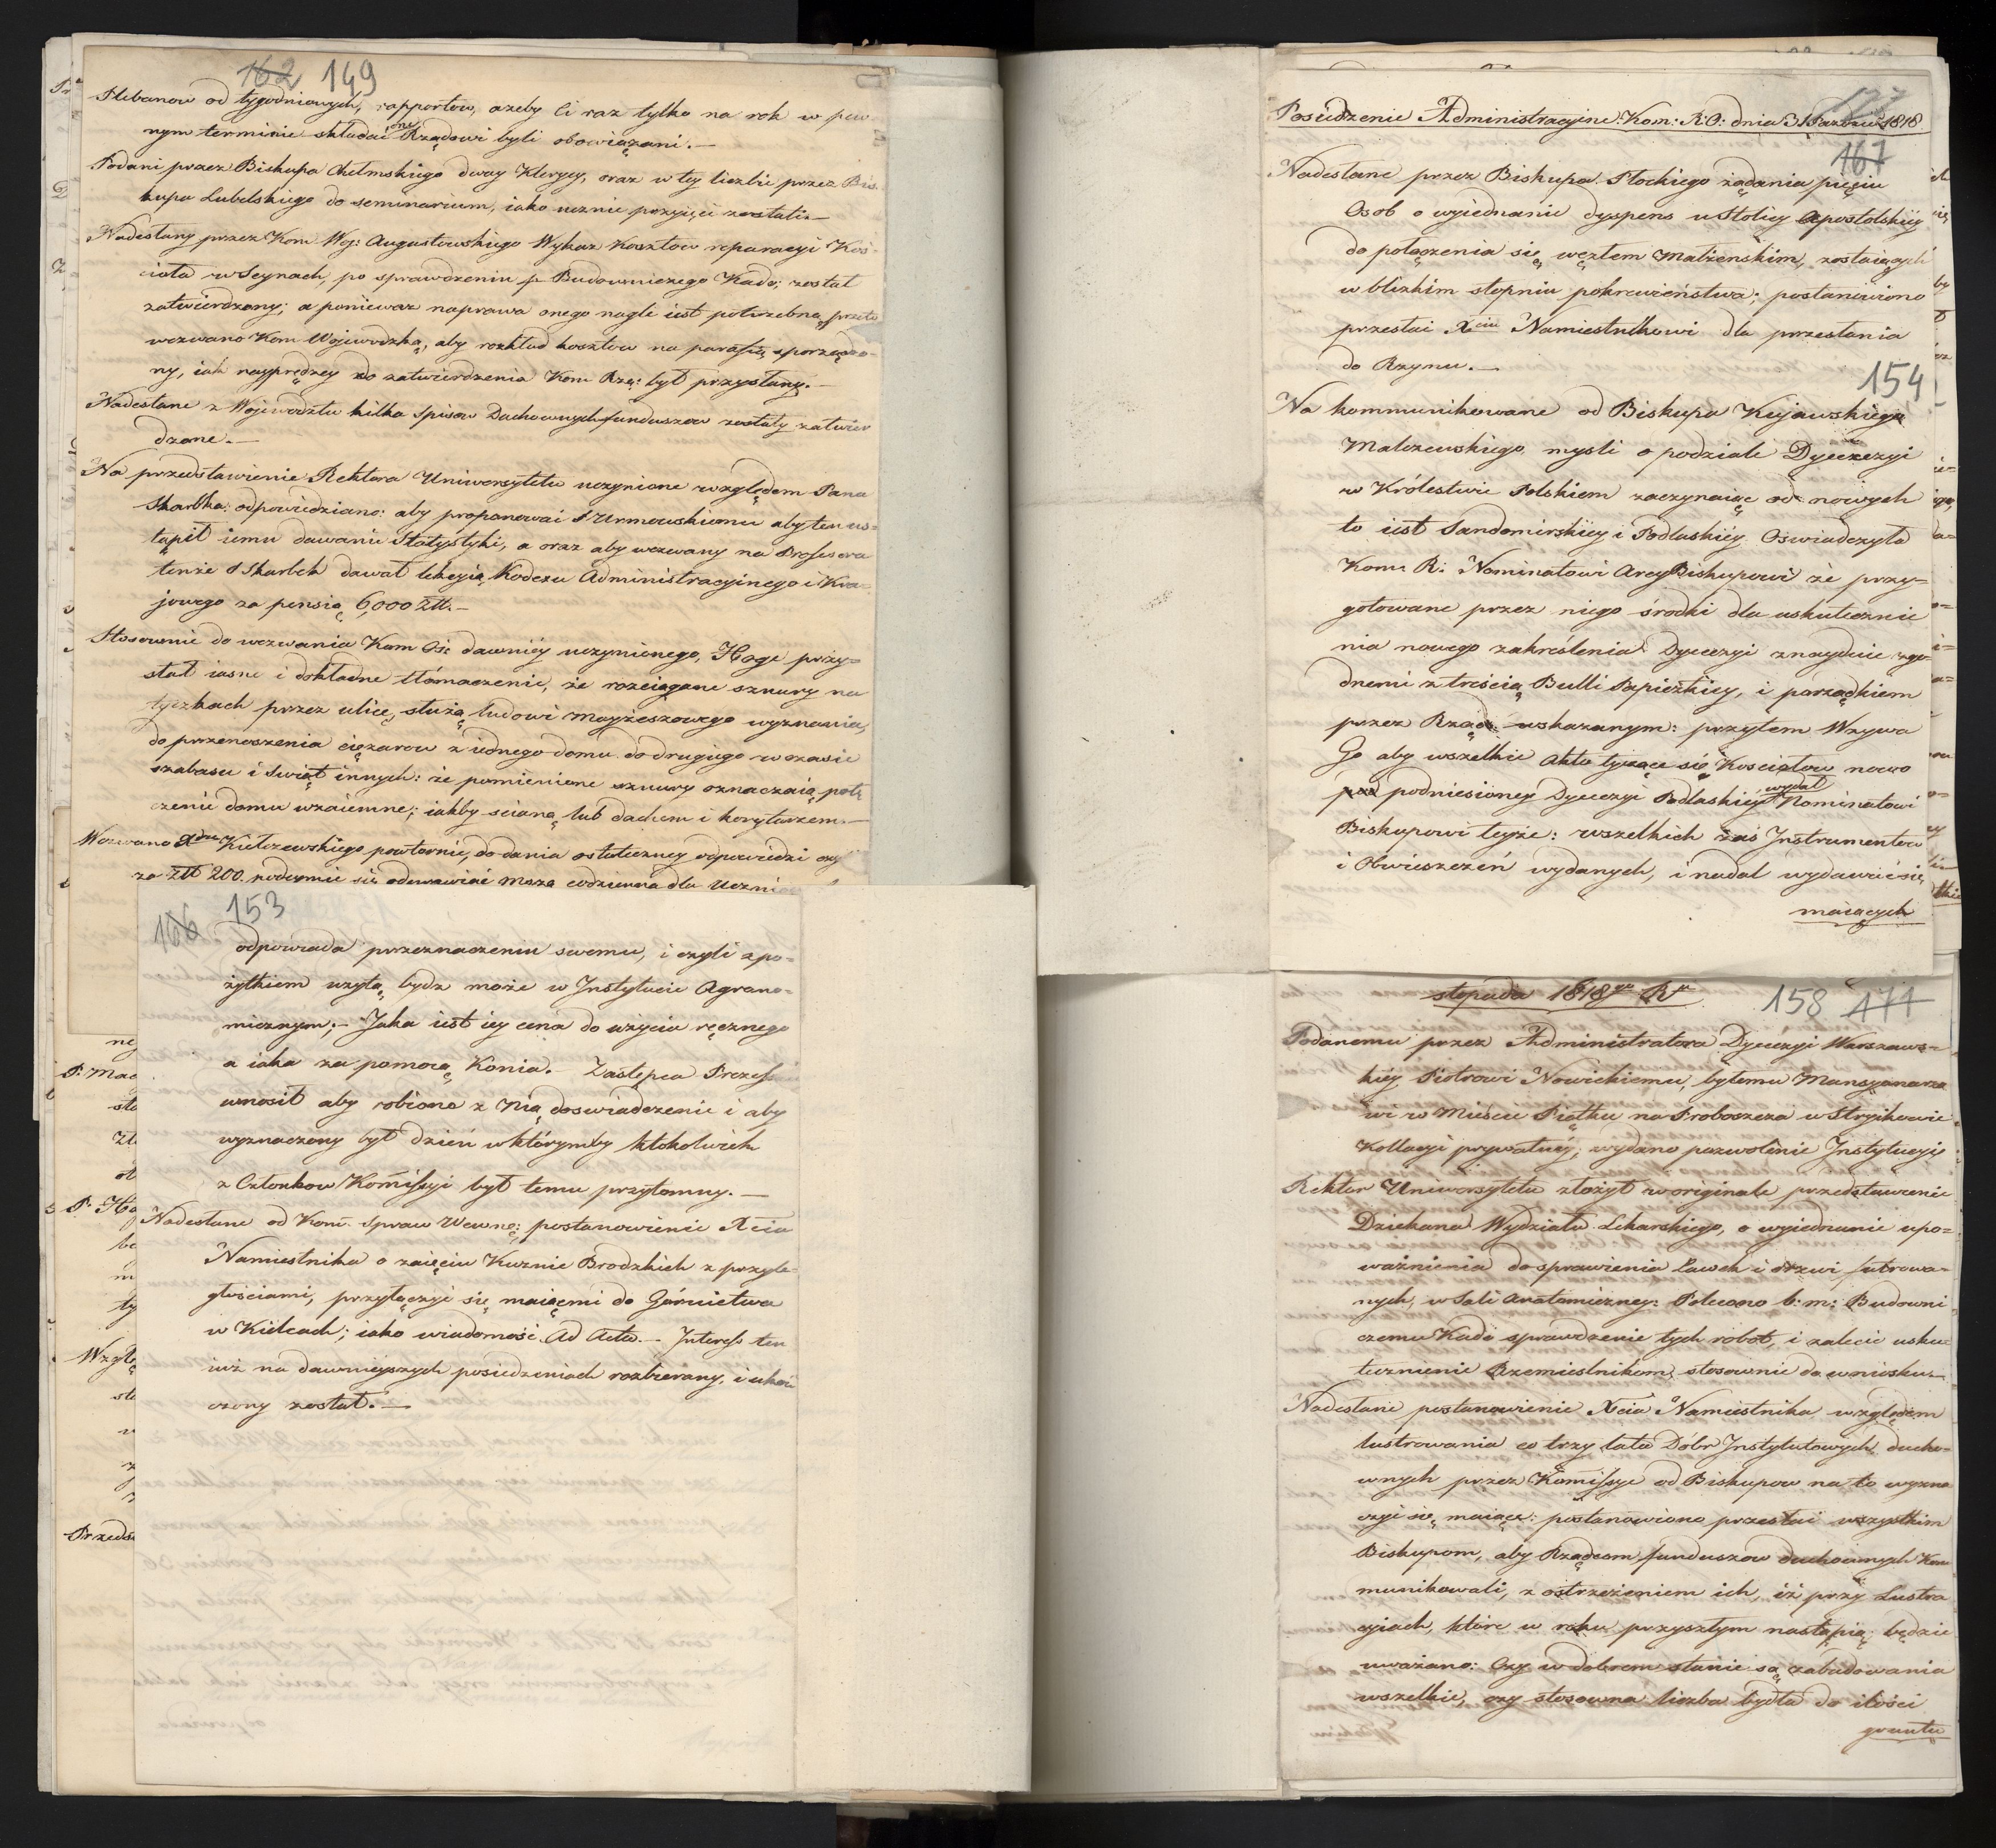 162 149
Plebanow od tygodniowych, rapportow, azeby Ci raz tylko na rok w pew
nym terminie składać one Rządowi byli obowiązani.—
Podani przez Biskupa Chełmskiego dway Klerycy, oraz w tey liczbie przez Bis-
kupa Lubelskiego do seminarium, iako ucznie przyięci zostali.—
Nadesłany przez Kom Woj: Augustowskiego Wykaz Kosztow reparacyi Koś-
cioła w Seynach, po sprawdzeniu p. Budowniczego Kado; został
zatwierdzony; a ponieważ naprawa onego nagle iest potrzebną, przeto
wezwano Kom Wojewodzką, aby rozkład kosztow na parafią sporządzo-
ny, iak nayprędzey do zatwierdzenia Kom Rzą: był przysłany.—
Nadesłane z Wojewodztw kilka Spisow Duchownych funduszow zostały zatwier
dzone.—
Na przedstawienie Rektora Uniwersytetu uczynione względem Pana
Skarbka: odpowiedziano: aby proponował P Urmowskiemu aby ten us-
tąpił iemu dawanie Statystyki, a oraz aby wezwany na Profesora
tenże P Skarbek dawał lekcyią Kodexu Administracyinego i Kra-
jowego za pensią 6,000 Złł.—
Stosownie do wezwania Kom Oś: dawniéy uczynionego, Hoge przy-
słał iasne i dokładne tłómaczenie, że rozciągane sznury na
tyczkach przez ulicę, służą ludowi Moyżeszowego wyznania,
do przenoszenia ciężarow z iednego domu do drugiego w czasie
szabasu i Swiąt innych: że pomienione sznury oznaczaią połą
czenie domu wzaiemne; iakby scianą, lub dachem i korytarzem.—
Wezwano Xdza Kiełczewskiego powtornie, do dania ostateczney odpowiedzi czy
za Złł 200. podeymie się odprawiać Mszą codzienną dla Uczni
166 153
odpowiada przeznaczeniu swemu, i czyli z po-
żytkiem użytą bydz może w Instytucie Agrano-
micznym;— Jaka iest iey cena do użycia ręcznego
a iaka za pomocą Konia.— Zastępca Prezesa
wnosił aby robione z nią doswiadczenie i aby
wyznaczony był dzień w którymby ktokolwiek
z Członkow Kommissyi był temu przytomny.—
Nadesłane od Kom. Spraw Wewnę: postanowienie Xcia
Namiestnika o zaięciu Kuznic Brodzkich z przyle-
głościami, przyłączyć się maiącemi do Górnictwa
w Kielcach; iako wiadomość Ad Acta.— Interess ten
iuż na dawnieyszych posiedzeniach rozbierany, i ukoń
czony został.—
Posiedzenie Administracyine Kom: R:O: dnia 31 Pazdzier 1818.
167
Nadesłane przez Biskupa Płockiego żądania pięciu
Osob o wyiednanie dyspens u Stolicy Apostolskiey
do połączenia się węzłem małżenskim, zostaiących
w blizkim stopniu pokrewieństwa; postanowiono
przesłać Xciu Namiestnikowi dla przesłania
do Rzymu.—
154
Na kommunikowane od Biskupa Kujawskiego
Malczewskiego, mysli o podziale Dyecezyi
w Królestwie Polskiem zaczynaiąc od nowych
to iest Sandomirskiey i Podlaskiéy. Oswiadczyła
Kom: R: Nominatowi ArcyBiskupowi że przy-
gotowane przez niego środki dla uskutecznie
nia nowego zakréślenia Dyecezyi znayduie zgo-
dnemi z treścią Bulli Papiezkiey, i porządkiem
przez Rząd wskazanym: przytem Wzywa
Go aby wszelkie Akta tyczące się Kosciołow nowo
pod podniesioney Dyecezyi Podlaskiey wydał Nominatowi
Biskupowi teyże: wszelkich zaś Instrumentow
i Obwieszczeń wydanych, i nadal wydawać się
maiących
stopada 1818go Rr.
158 171
Podanemu przez Administratora Dyecezyi Warszaws-
kiéy Piotrowi Nowickiemu, byłemu Mansyonarzo
wi w Mieście Piątku na Proboszcza w Strykowie
Kollacyi prywatnéy; wydano pozwolenie Instytucyi
Rektor Uniwersytetu złożył w originale przedstawienie
Dziekana Wydziału Lekarskiego, o wyiednanie upo-
ważnienia do sprawienia Ławek i drzwi futrowa-
nych, w Sali Anatomiczney: Polecono b: m: Budowni
czemu Kado sprawdzenie tych robot, i zalecie usku
tecznienie Rzemieslnikom, stosownie do wniosku.—
Nadesłane postanowienie Xcia Namiestnika względem
lustrowania co trzy lata Dóbr Instytutowych ducho-
wnych przez Kommissye od Biskupow na to wyzna
czyć się maiące: postanowiono przesłać wszystkim
Biskupom, aby Rządcom funduszow duchownych Kom
munikowali, z ostrzeżeniem ich, iż przy Lustra
cyiach, które w roku przyszłym nastąpią, będzie
uważano: Czy w dobrem stanie są zabudowania
wszelkie, czy stosowna liczba bydła do ilości
gruntu